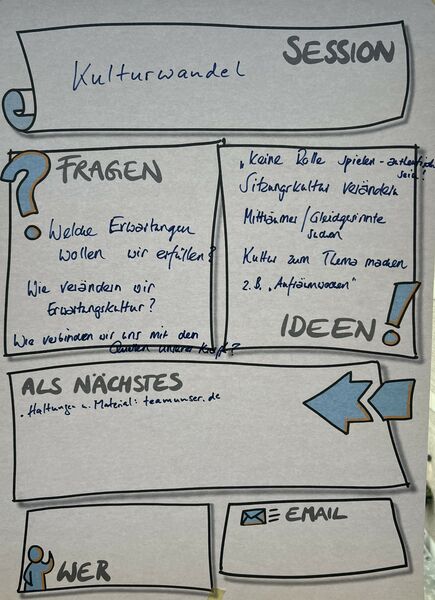 SESSION
Kulturwandel
FRAGEN
Welche Erwartungen
wollen wir erfüllen?
Wie verändern wir
Erwartungskultur?
Wie verbinden wir uns mit den
Quellen unserer Kraft?
"Keine Rolle spielen - authentisch
sein!
Sitzungskultur verändern
Mitträumer/Gleichgesinnte
suchen
Kultur zum Thema machen
z.B. „Aufräumwochen"
IDEEN!
ALS NÄCHSTES
. Haltungen u. Material: teamunser.de
WER
EMAIL